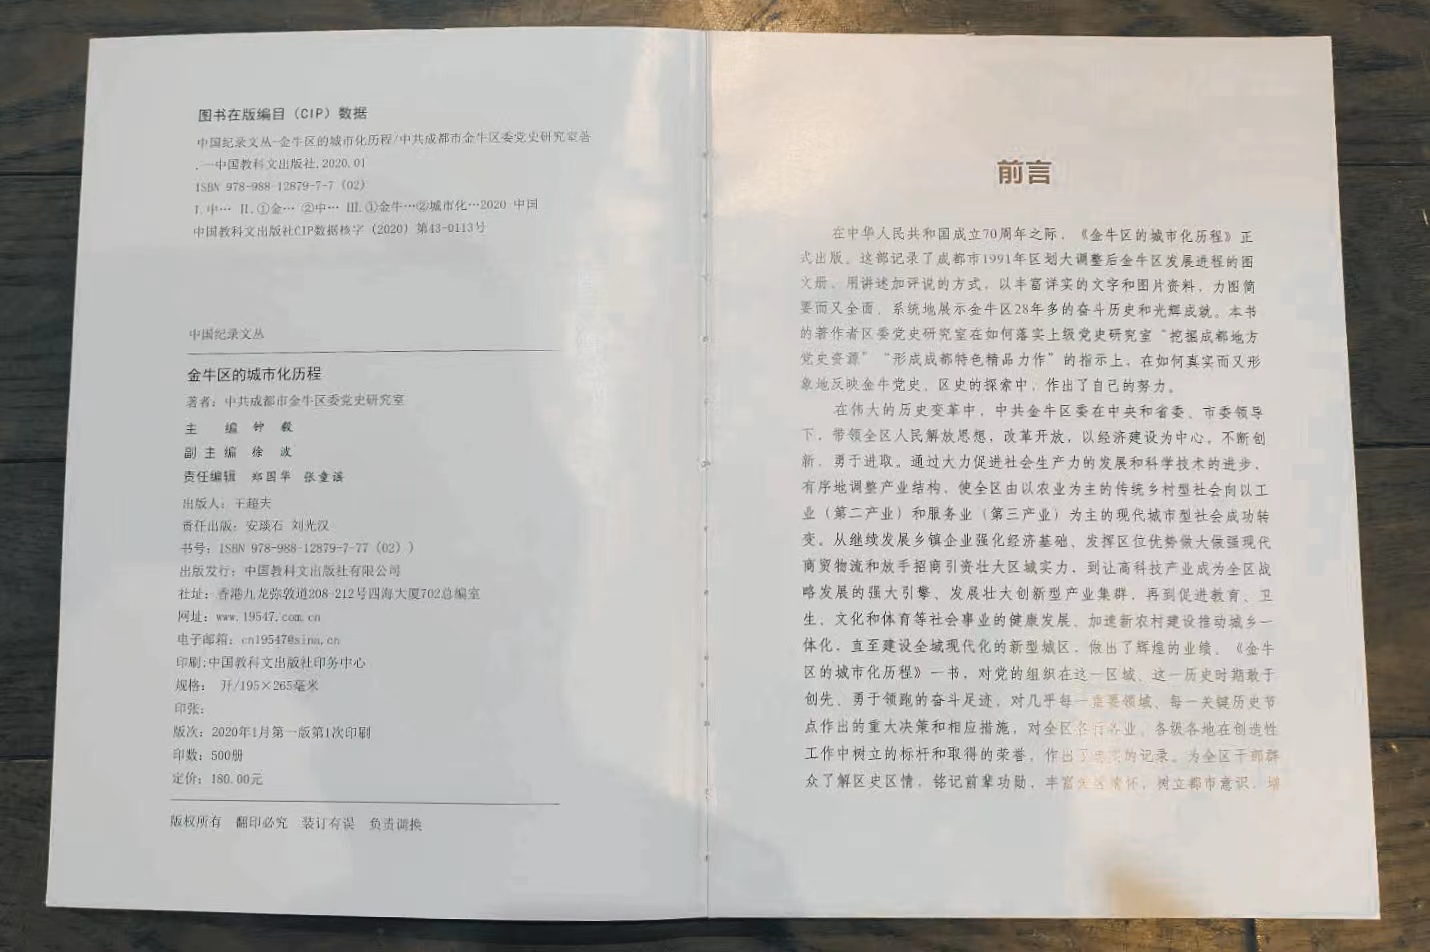 图书在版编目（CIP）数据
中国纪录文丛-金牛区的城市化历程/中共成都市金牛区委党史研究室著
.一中国教科文出版社,2020.01
ISBN 978-988-12879-7-7（02）
I.中… II.①金… ②中… III.①金牛…②城市化…2020 中国
中国教科文出版社CIP数据核字（2020）第43-0113号
中国纪录文丛
金牛区的城市化历程
著者：中共成都市金牛区委党史研究室
主 编 钟 毅
副主编 徐 波
责任编辑 郑国华 张童谣
出版人：王超夫
责任出版：安琰石 刘光汉
书号：ISBN 978-988-12879-7-77（02））
出版发行：中国教科文出版社有限公司
社址：香港九龙弥敦道208-212号四海大厦702总编室
网址：www.19547.com.cn
电子邮箱：cn19547@sina.cn
印刷:中国教科文出版社印务中心
规格： 开/195×265毫米
印张：
版次：2020年1月第一版第1次印刷
印数：500册
定价：180.00元
版权所有 翻印必究 装订有误 负责调换
前言
在中华人民共和国成立70周年之际，《金牛区的城市化历程》正
式出版。这部记录了成都市1991年区划大调整后金牛区发展进程的图
文册，用讲述加评说的方式，以丰富详实的文字和图片资料，力图简
要而又全面、系统地展示金牛区28年多的奋斗历史和光辉成就。本书
的著作者区委党史研究室在如何落实上级党史研究室“挖掘成都地方
党史资源”“形成成都特色精品力作”的指示上，在如何真实而又形
象地反映金牛党史、区史的探索中，作出了自己的努力。
在伟大的历史变革中，中共金牛区委在中央和省委、市委领导
下，带领全区人民解放思想，改革开放，以经济建设为中心，不断创
新，勇于进取。通过大力促进社会生产力的发展和科学技术的进步，
有序地调整产业结构，使全区由以农业为主的传统乡村型社会向以工
业（第二产业）和服务业（第三产业）为主的现代城市型社会成功转
变。从继续发展乡镇企业强化经济基础、发挥区位优势做大做强现代
商贸物流和放手招商引资壮大区域实力，到让高科技产业成为全区战
略发展的强大引擎、发展壮大创新型产业集群，再到促进教育、卫
生、文化和体育等社会事业的健康发展、加速新农村建设推动城乡一
体化，直至建设全域现代化的新型城区，做出了辉煌的业绩。《金牛
区的城市化历程》一书，对党的组织在这一区域、这一历史时期敢于
创先、勇于领跑的奋斗足迹，对几乎每一重要领域、每一关键历史节
点作出的重大决策和相应措施，对全区各行各业、各级各地在创造性
工作中树立的标杆和取得的荣誉，作出了忠实的记录。为全区干部群
众了解区史区情，铭记前辈功勋，丰富 怀，树立都市意识，增